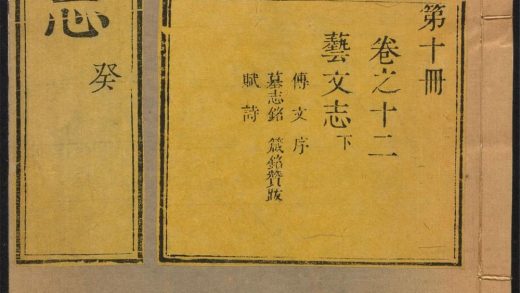 第十冊
卷之十二
藝文志下
傳 文 序
墓志銘 箴銘贊跋
賦 詩
志
癸